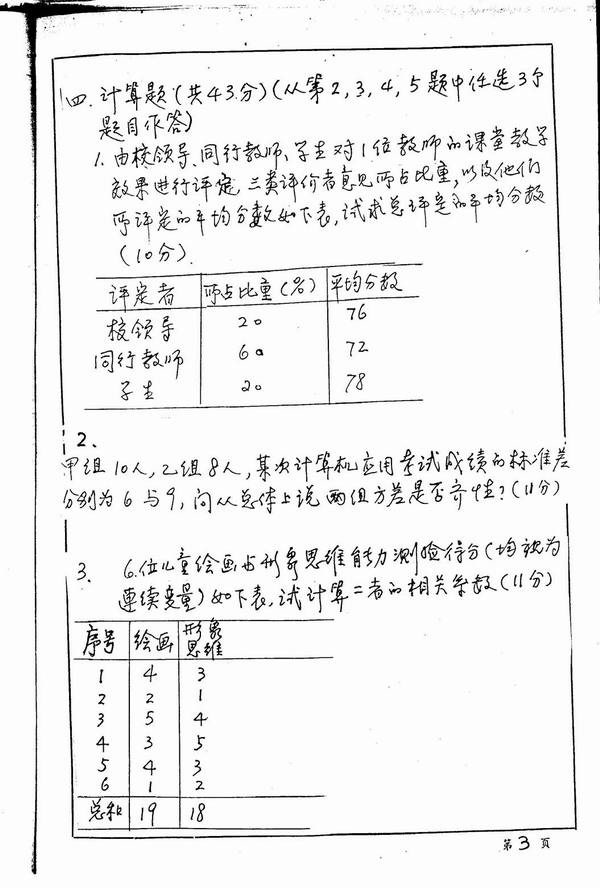 四. 计算题(共43分)(从第2,3,4,5题中任选3个
题目作答)
1. 由校领导、同行教师、学生对1位教师的课堂教学
效果进行评定,三类评价者意见所占比重,以及他们
所评定的平均分数如下表,试求总评定的平均分数
(10分).
评定者 所占比重(%) 平均分数
校领导 20 76
同行教师 60 72
学生 20 78
2.
甲组10人,乙组8人,某次计算机应用考试成绩的标准差
分别为6与9,问从总体上说两组方差是否齐性?(11分)
3. 6位儿童绘画与形象思维能力测验得分(均视为
连续变量)如下表,试计算二者的相关系数(11分)
序号 绘画 形象思维
1 4 3
2 2 1
3 5 4
4 3 5
5 4 3
6 1 2
总和 19 18
第 3 页